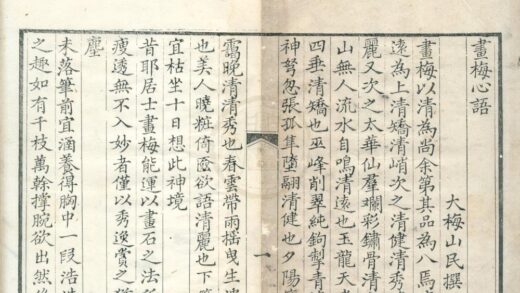 畫梅心語
大梅山民撰
畫梅以清為尚余第其品為八焉
遠為上清矯清峭次之清健清秀
麗又次之太華仙羣斕彩鏽骨清
山無人流水自鳴清遠也玉龍天
四垂清矯也巫峰削翠純鉤掣青
神弩忽張孤隼墮翮清健也夕陽
一
靄晚清清秀也春雲帶雨搖曳生
也美人曉粧倚奩欲語清麗也下
宜枯坐十日想此神境
昔耶居士畫梅能運以畫石之法
瘦透無不入妙者僅以秀逸賞之
塵
未落筆前宜涵養得胸中一段浩
之趣如有千枝萬榦撐腕欲出然